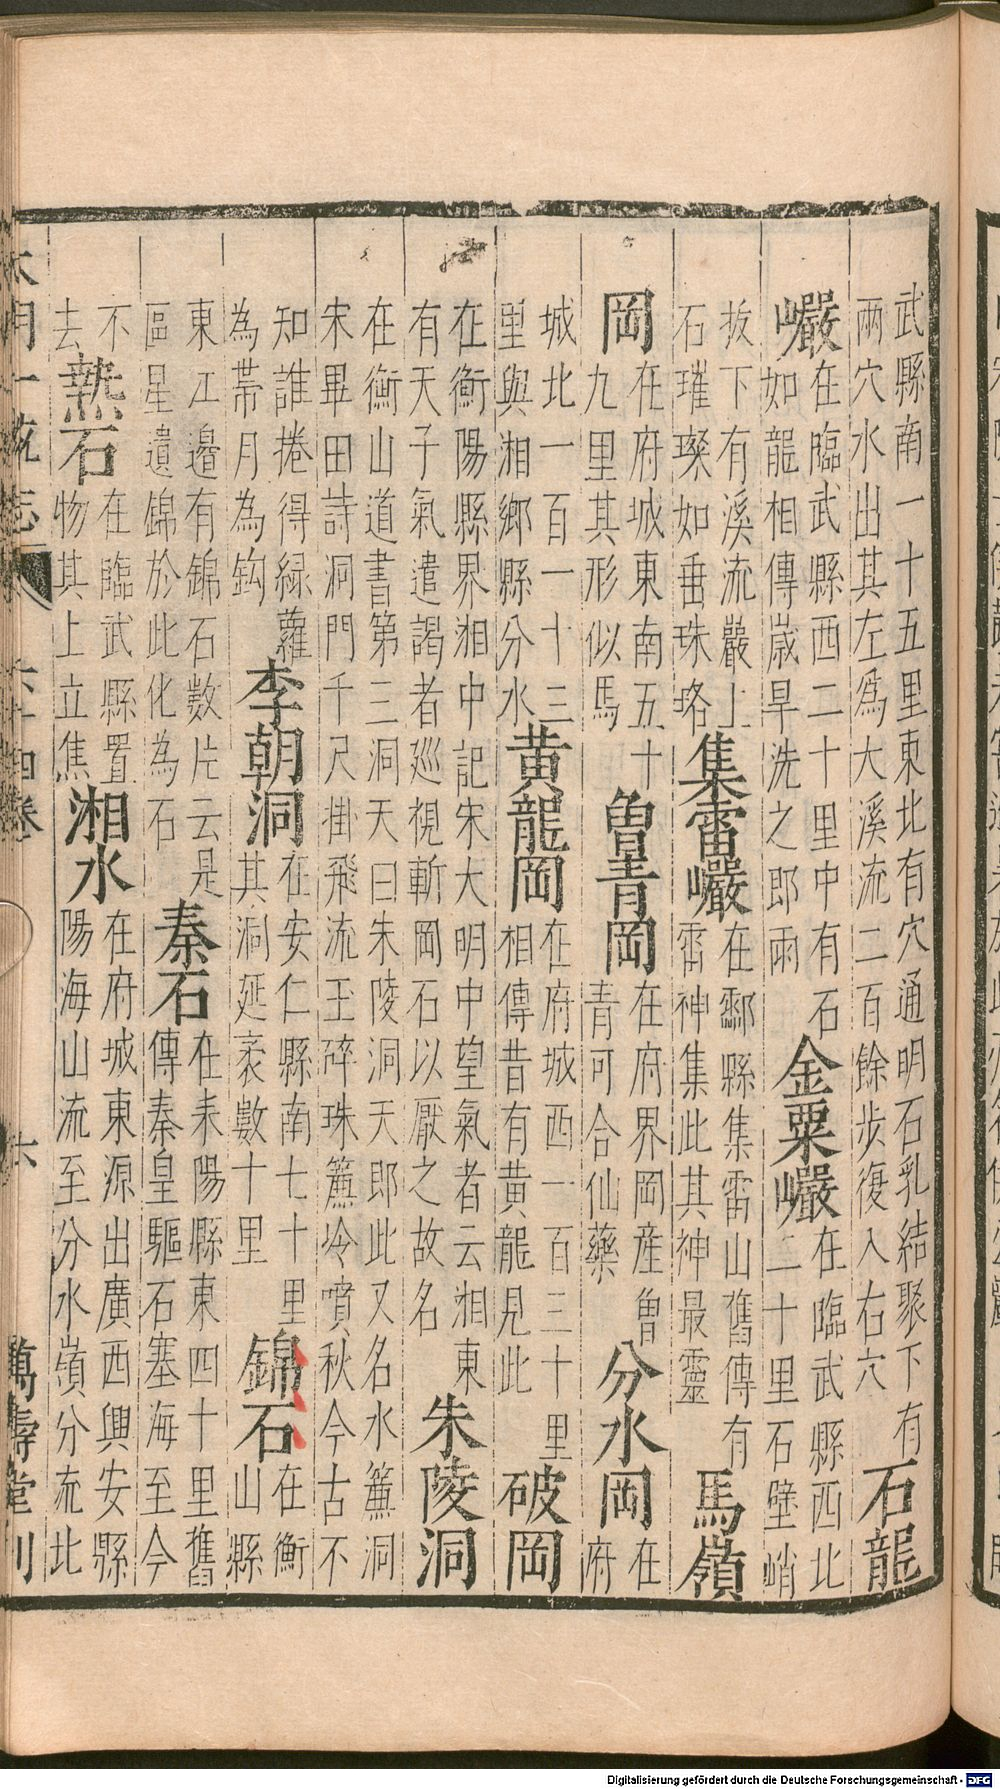 武縣南一十五里東北有穴通明石乳結聚下有兩穴水出其左為大溪流二百餘步復入右穴石龍
巗在臨武縣西二十里中有石如龍相傳歲旱洗之即雨金粟巗在臨武縣西北二十里石壁峭
拔下有溪流巖上石璀璨如垂珠略集雷巗在酃縣集雷山舊傳有雷神集此其神最靈馬嶺
岡在府城東南五十九里其形似馬魯青岡在府界岡産魯青可合仙藥分水岡在府
城北一百一十三里與湘鄉縣分水黄龍岡在府城西一百三十里相傳昔有黄龍見此破岡
在衡陽縣界湘中記宋大明中望氣者云湘東有天子氣遣謁者巡視斬岡石以厭之故名朱陵洞
在衡山道書第三洞天曰朱陵洞天即此又名水簾洞宋畢田詩洞門千尺掛飛流玉碎珠簾冷噴秋今古不
知誰捲得緑蘿為帶月為鈎李朝洞在安仁縣南七十里其洞延袤數十里錦石在衡山縣
東江邊有錦石數片云是區星遺錦於此化為石秦石在耒陽縣東四十里舊傳秦皇驅石塞海至今
不去熱石在臨武縣置物其上立焦湘水在府城東源出廣西興安縣陽海山流至分水嶺分流北
大明一統志 六十四卷 六 萬壽堂刊
Digitalisierung gefördert durch die Deutsche Forschungsgemeinschaft - DFG